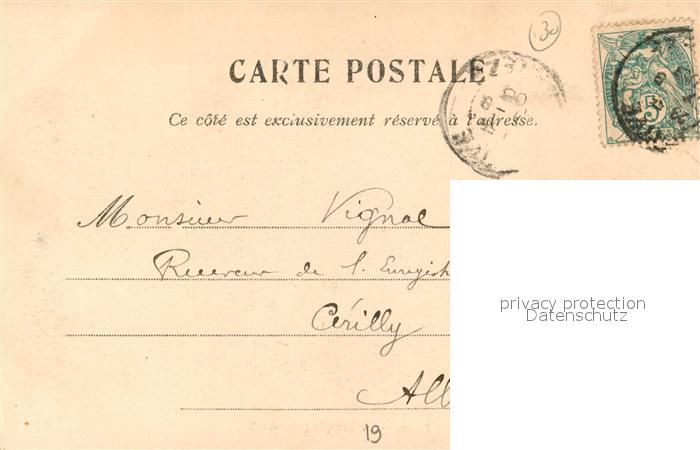 30
CARTE POSTALE
Ce côté est exclusivement réservé à l'adresse.
Monsieur Vignal
Receveur de l'Enregist
Cérilly
All
19
privacy protection
Datenschutz